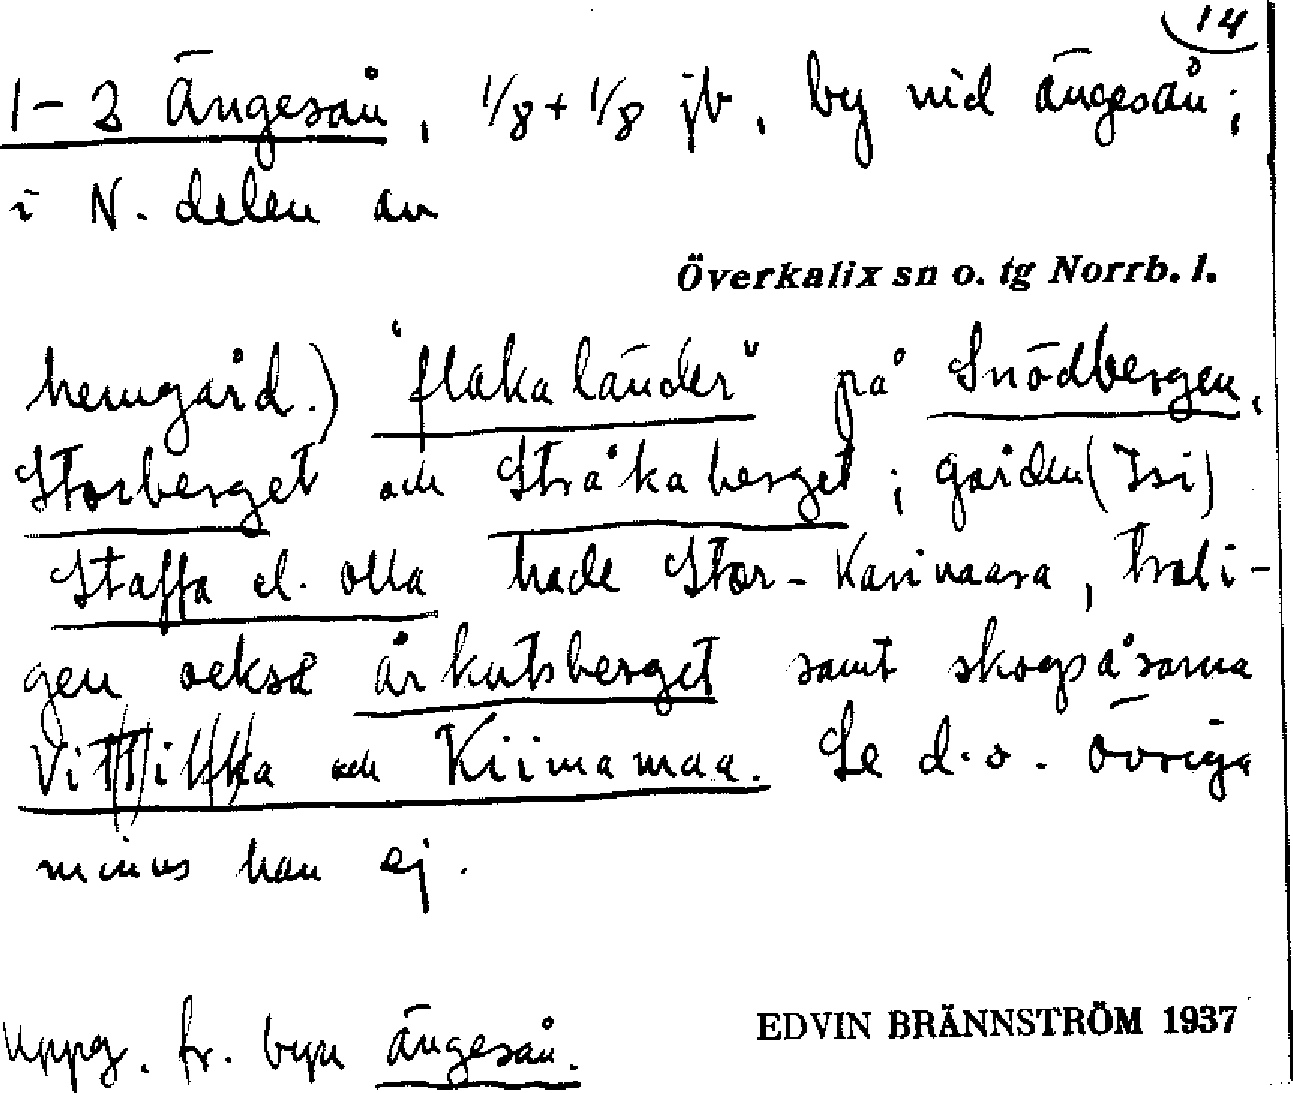 14
1-2 Ängesån, 1/8 + 1/8 jb, by vid Ängesån;
i N. delen av
Överkalix sn o. tg Norrb. l.
hemgård.) "flakaländer" på Snödbergen,
Storberget och Stråkaberget; gården (Isi)
Staffa el. Olla hade Stor-Karivaara, troli-
gen också årkutsberget samt skogsåsarna
och Kiimamaa. Se d.o. Övriga
minns han ej.
Uppg. fr. byn Ängesån.
EDVIN BRÄNNSTRÖM 1937